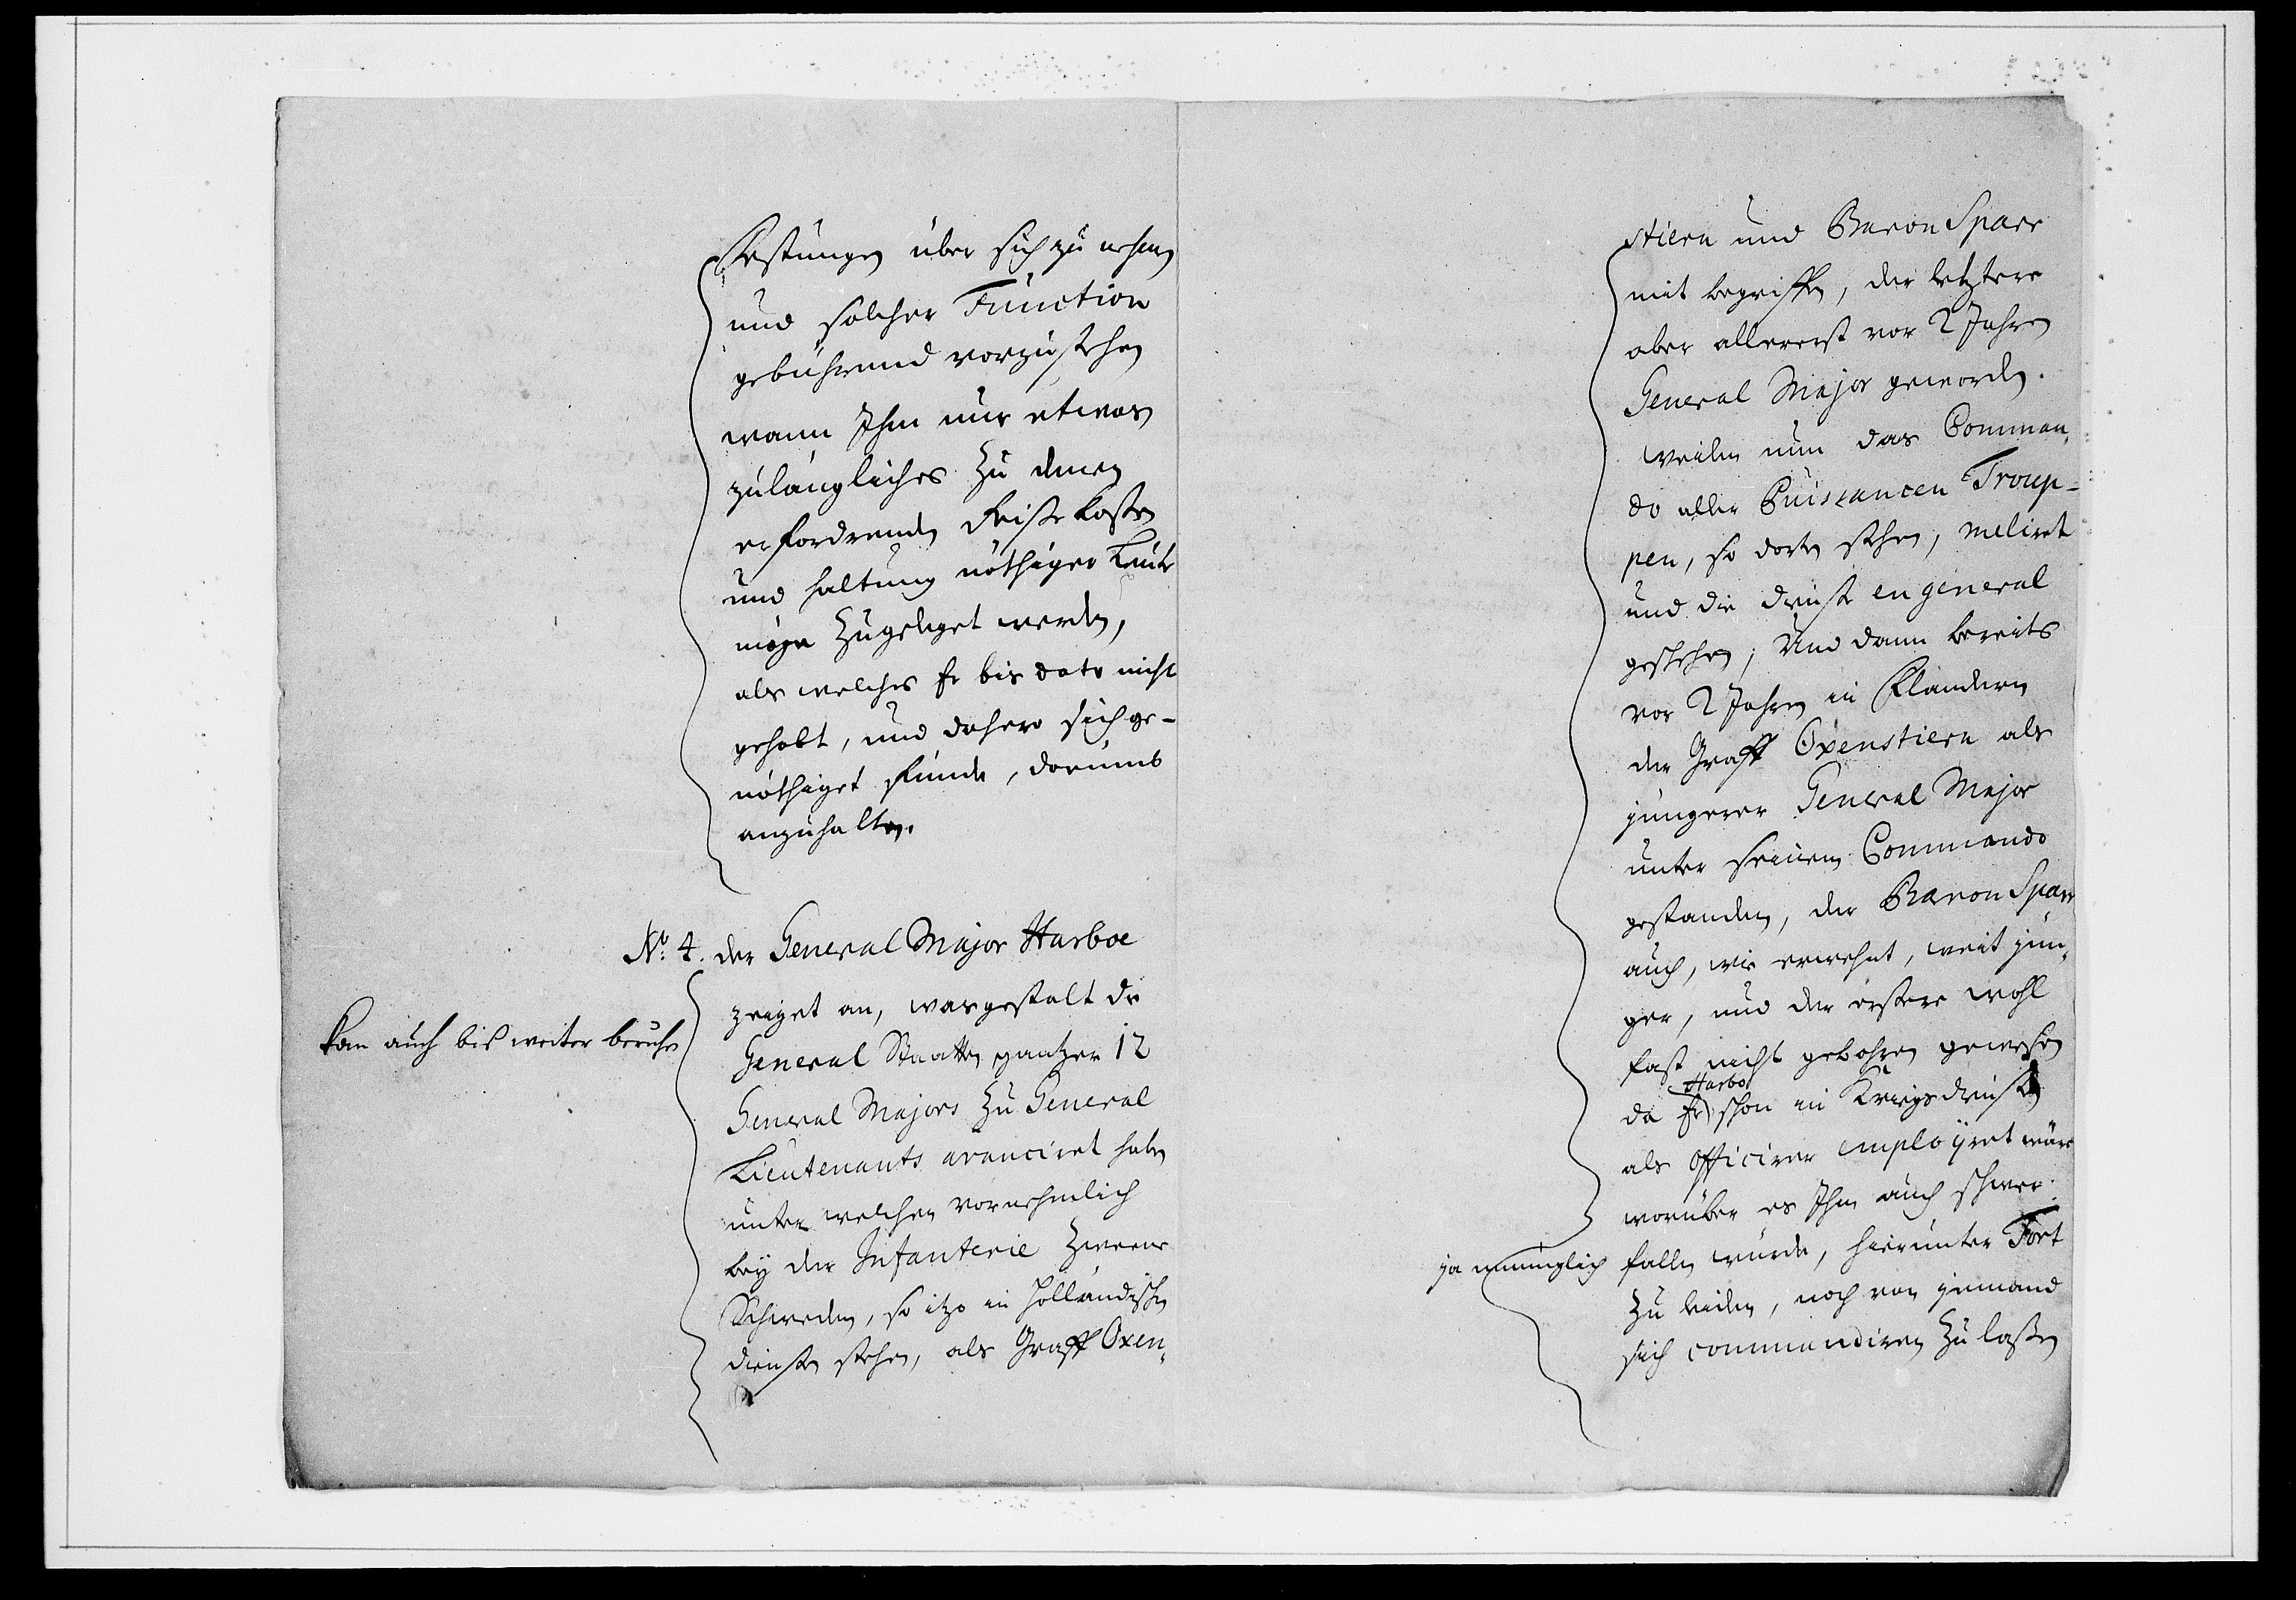 Festungen über sich zu nehmen
und solcher Function
gebührend vorzustehen
wann Ihm nur etwas
zulängliches zu denen
erfordrenden Reise kosten
und haltung nöthiger Leute
möge zugeleget werden,
als welches Er bis dato nicht
gehabt, und dahero sich ge-
nöthiget funde, darumb
anzuhalten.
No: 4. der General Major Harboe
zeiget an, wasgestalt die
General Staaten gantzer 12
General Majors zu General
Lieutenants avanciret haben
unter welchen vornehmlich
bey der Infanterie zweene
Schweden, so itzo in Holländischen
diensten stehen, als Graff Oxen„
kan auch biß weiter beruhen
stiern und Baron Sparr
mit begriffen, der letztere
aber allererst vor 2 Jahren
General Major geworden.
weilen nun das Comman„
do aller Puissancen Troup-
pen, so dorten stehen, meliret
und die dienste en general
geschehen; Und dann bereits
vor 2 Jahren in Flandern
der Graff Oxenstiern als
jüngerer General Major
unter seinem Commando
gestanden, der Baron Sparr
auch, wie erwehnt, weit jün„
ger, und der erstere wohl
fast nicht gebohren gewesen
Harbo
da Er schon in Kriegsdiensten
als Officirer employret wäre
worüber es Ihm auch schwer
ja unmüglich fallen würde, hierunter Tort
zu leiden, noch von jemand
sich commandiren zu laßen